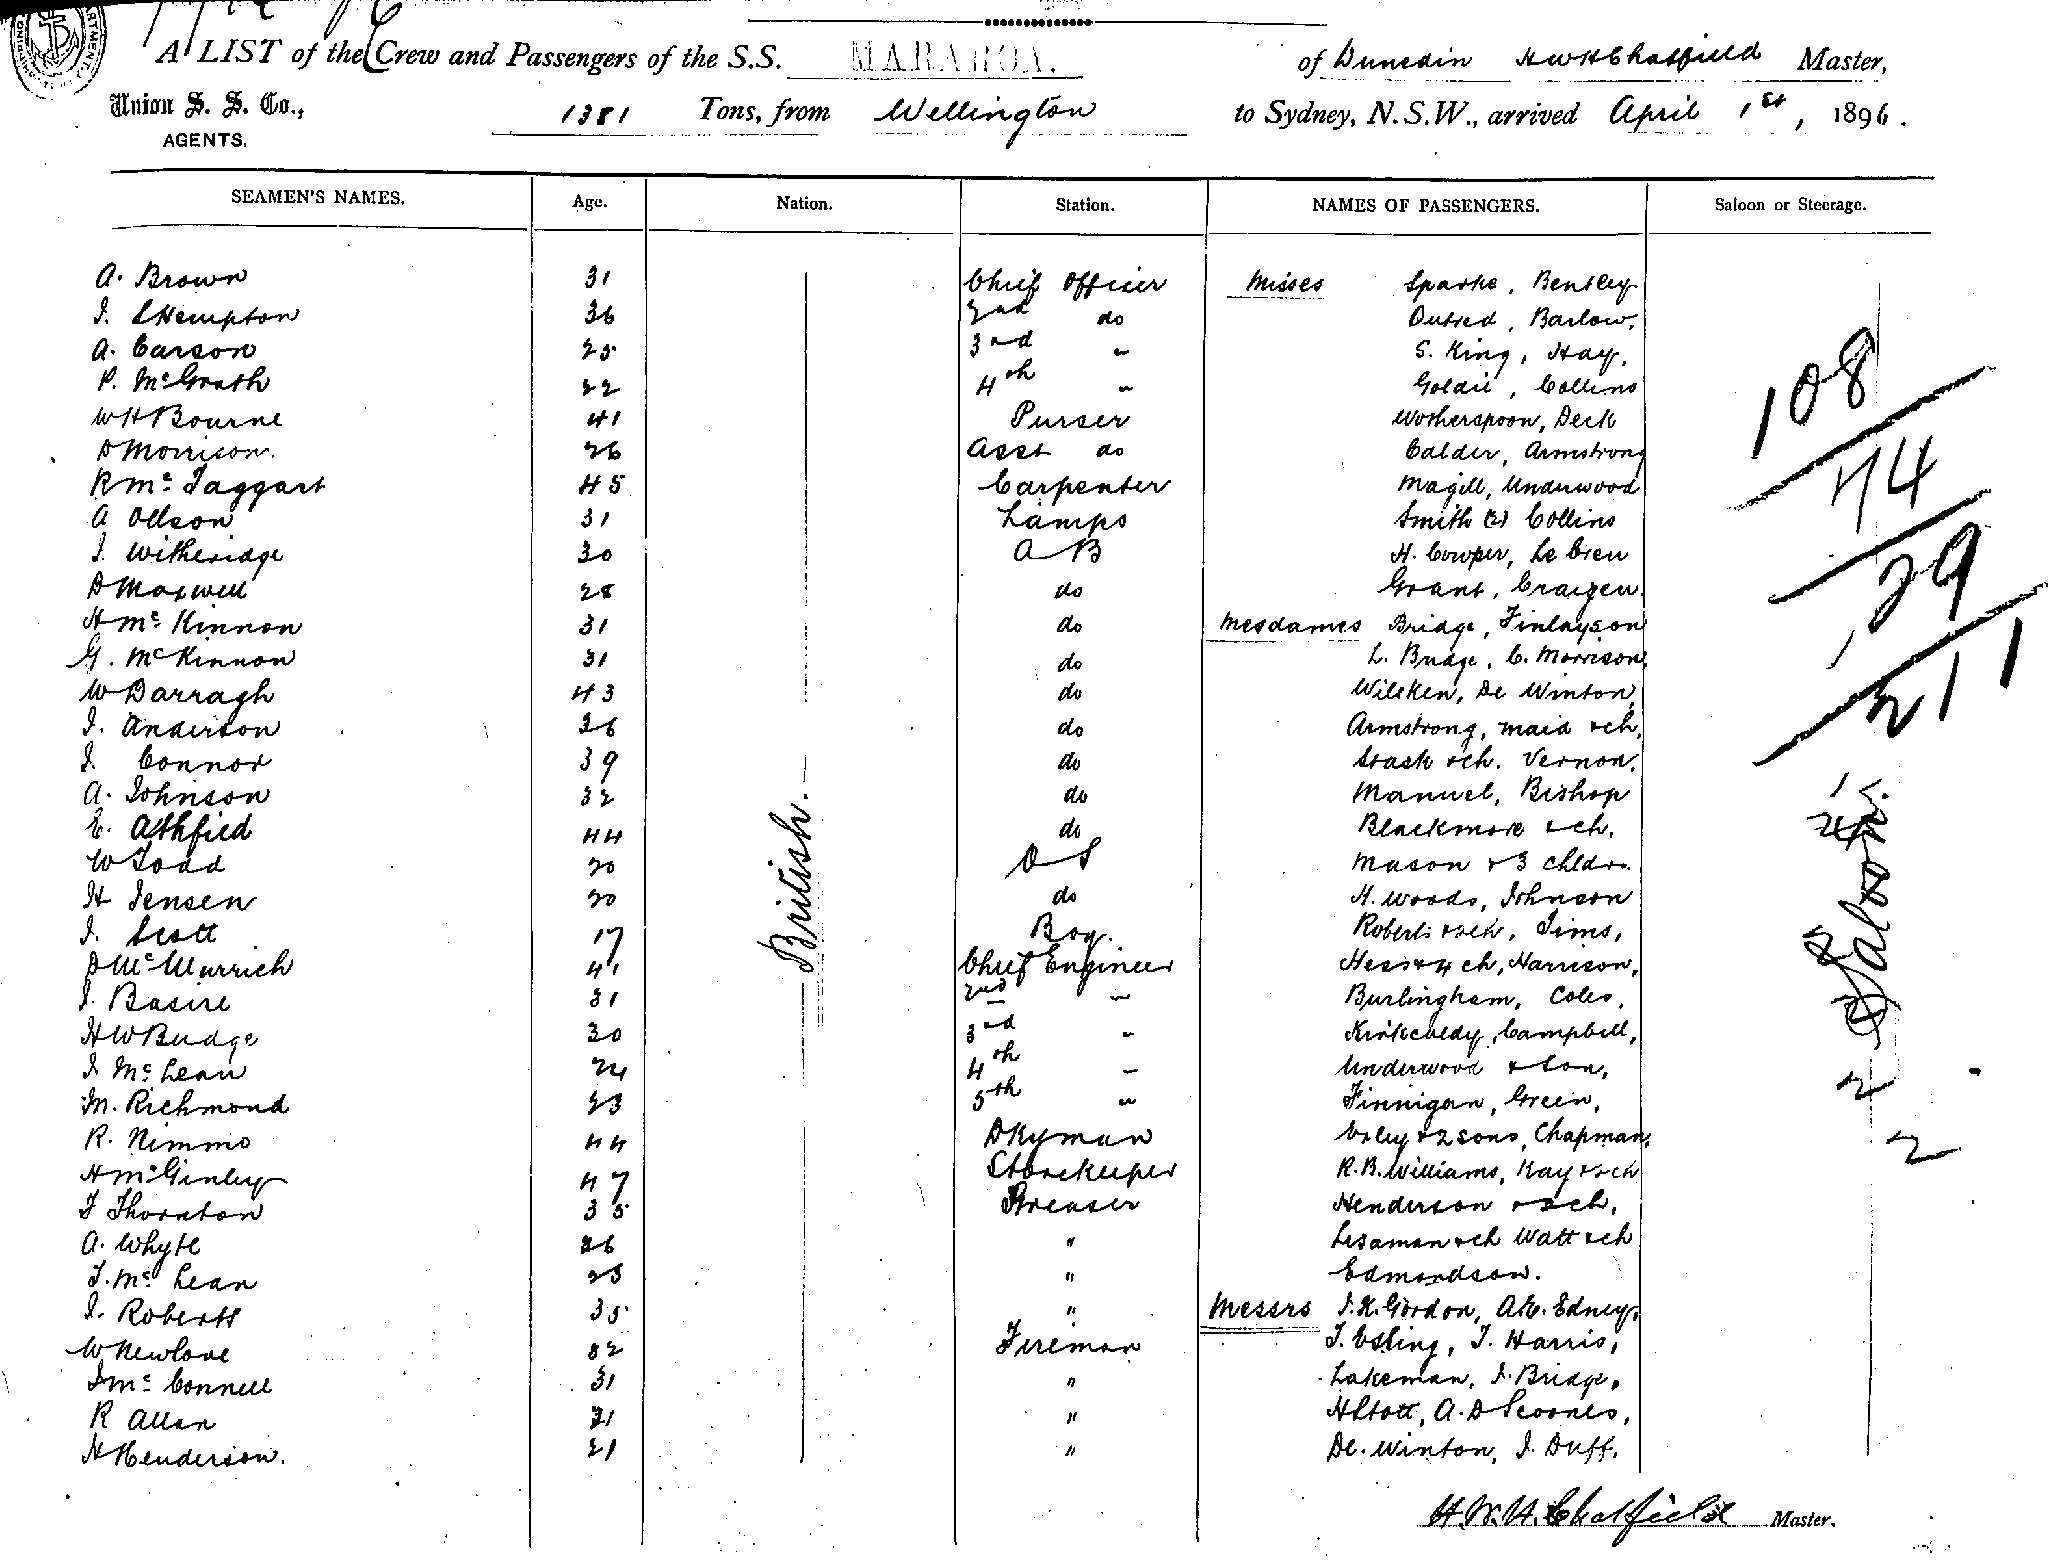 A LIST of the Crew and Passengers of the S.S. MARAROA. of Dunedin H W H Chatfield Master,
Union S. S. Co., 1381 Tons, from Wellington to Sydney, N.S.W., arrived April 1st, 1896.
AGENTS.
SEAMEN'S NAMES. Age. Nation. Station. NAMES OF PASSENGERS. Saloon or Steerage.
A. Brown 31 Chief Officer Misses Sparke, Bentley
36 2nd do Outred, Barlow,
A. Carson 25 3rd " S. King, Hay,
P. McGrath 22 4th " Goldie, Collins
W H Bourne 41 Purser Wotherspoon, Deck
D Morrison. 26 Asst do Calder, Armstrong
R Mc Taggart 45 Carpenter Magill, Underwood
A Ollson 31 Lamps Smith (2) Collins
J. Witheridge 30 A B H. Cowper, Le Cren
D Maxwell 28 do Grant,
H Mc Kinnon 31 do Mesdames Bridge, Finlayson
G. McKinnon 31 do L. Budge, C. Morrison,
W Darragh 43 do Wilcken, De Winton,
J. Anderson 36 do Armstrong, maid & ch,
J. Connor 39 do & ch. Vernon,
A. Johnson 32 do Manuel, Bishop
E. Athfield 44 do Blackmore & ch,
W Todd 20 O S Mason & 3 chldn.
H Jensen 20 do H. Woods, Johnson
J. Scott 17 Boy. Roberts & ch, Sims,
D McMurrich 41 Chief Engineer Hess & 4 ch, Harrison,
J. Basire 31 2nd " Burlingham, Coles,
H W Budge 30 3rd " Kirkcaldy, Campbell,
J McLean 24 4th " Underwood & Son,
M. Richmond 23 5th " Finnigan, Green,
R. Nimmo 44 Dkyman & 2 sons, Chapman,
H McGinley 47 Storekeeper R.B. Williams, Kay & ch
J Thornton 35 Greaser Henderson & ch,
A. Whyte 26 " Lesaman & ch Watt & ch
J. Mc Lean 23 " Edmondson.
J. Roberts 35 " Messrs J. K. Gordon, Edney,
W Newlove 32 Fireman J. Esling, J. Harris,
J Mc Connell 31 " Lakeman, J. Bridge,
R Allan 21 " H Stott, A. D Scoones,
H Henderson. 21 " De. Winton, J. Duff.
British.
108
74
29
211
Saloon.
H. W. H. Chatfield Master.